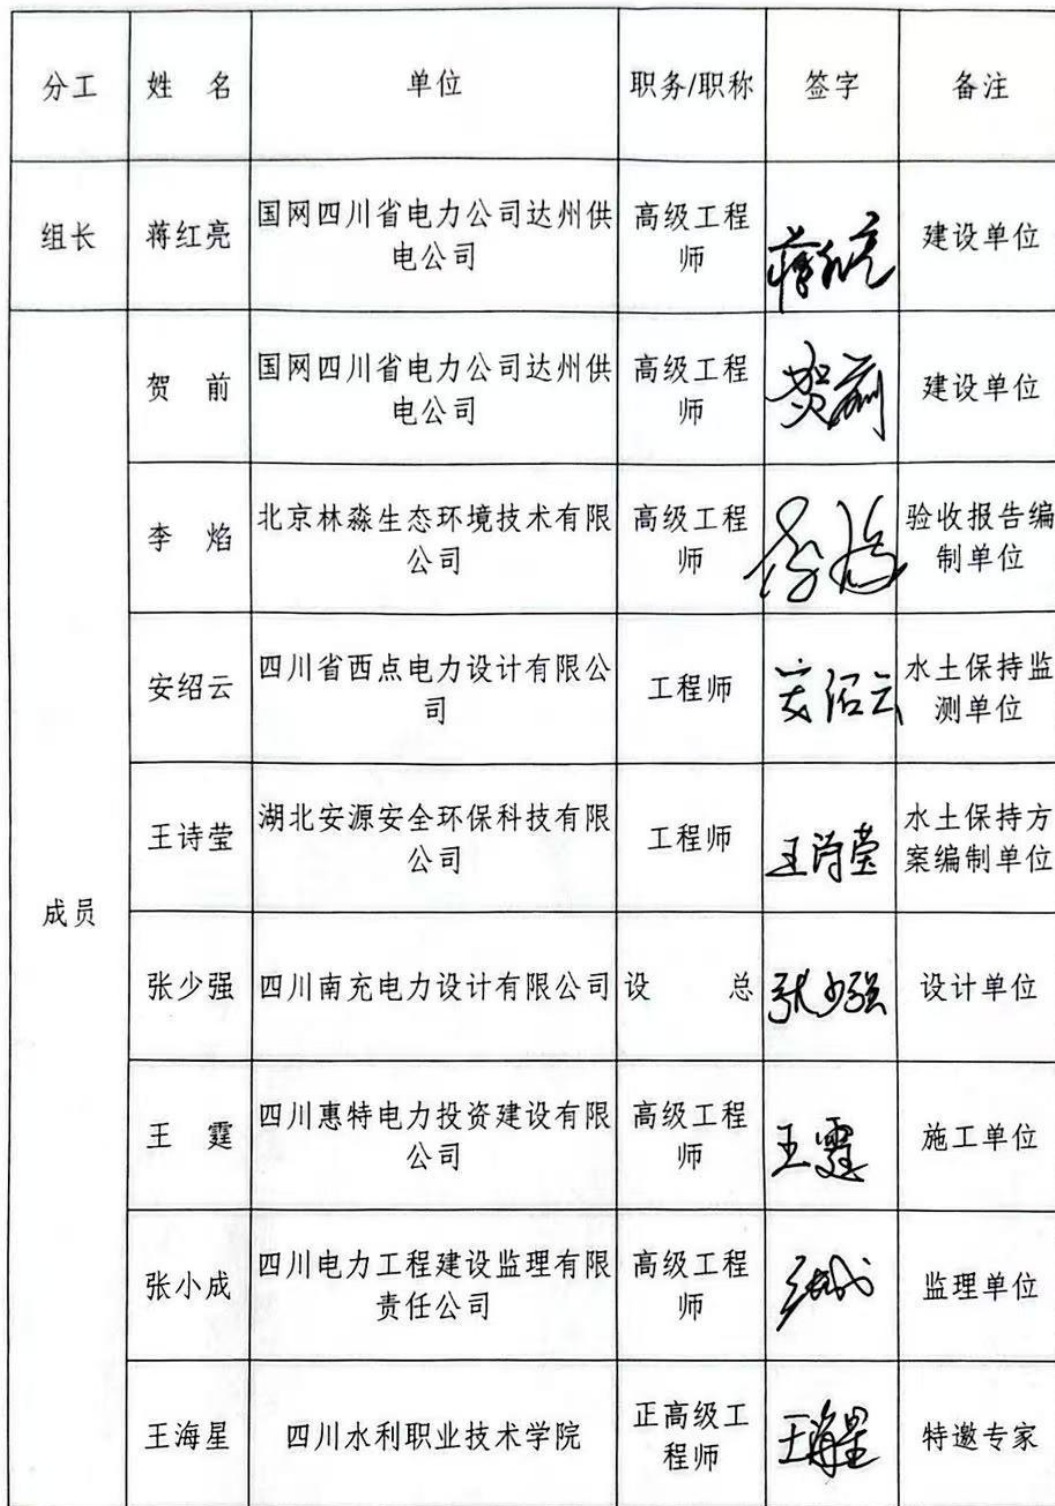 分工 姓 名 单位 职务/职称 签字 备注
组长 蒋红亮 国网四川省电力公司达州供 高级工程 蒋红亮 建设单位
电公司 师
贺 前 国网四川省电力公司达州供 高级工程 贺前 建设单位
电公司 师
李 焰 北京林淼生态环境技术有限 高级工程 李焰 验收报告编
公司 师 制单位
安绍云 四川省西点电力设计有限公 工程师 安绍云 水土保持监
司 测单位
王诗莹 湖北安源安全环保科技有限 工程师 王诗莹 水土保持方
公司 案编制单位
成员
张少强 四川南充电力设计有限公司 设 总 张少强 设计单位
王 霆 四川惠特电力投资建设有限 高级工程 王霆 施工单位
公司 师
张小成 四川电力工程建设监理有限 高级工程 张小成 监理单位
责任公司 师
王海星 四川水利职业技术学院 正高级工 王海星 特邀专家
程师